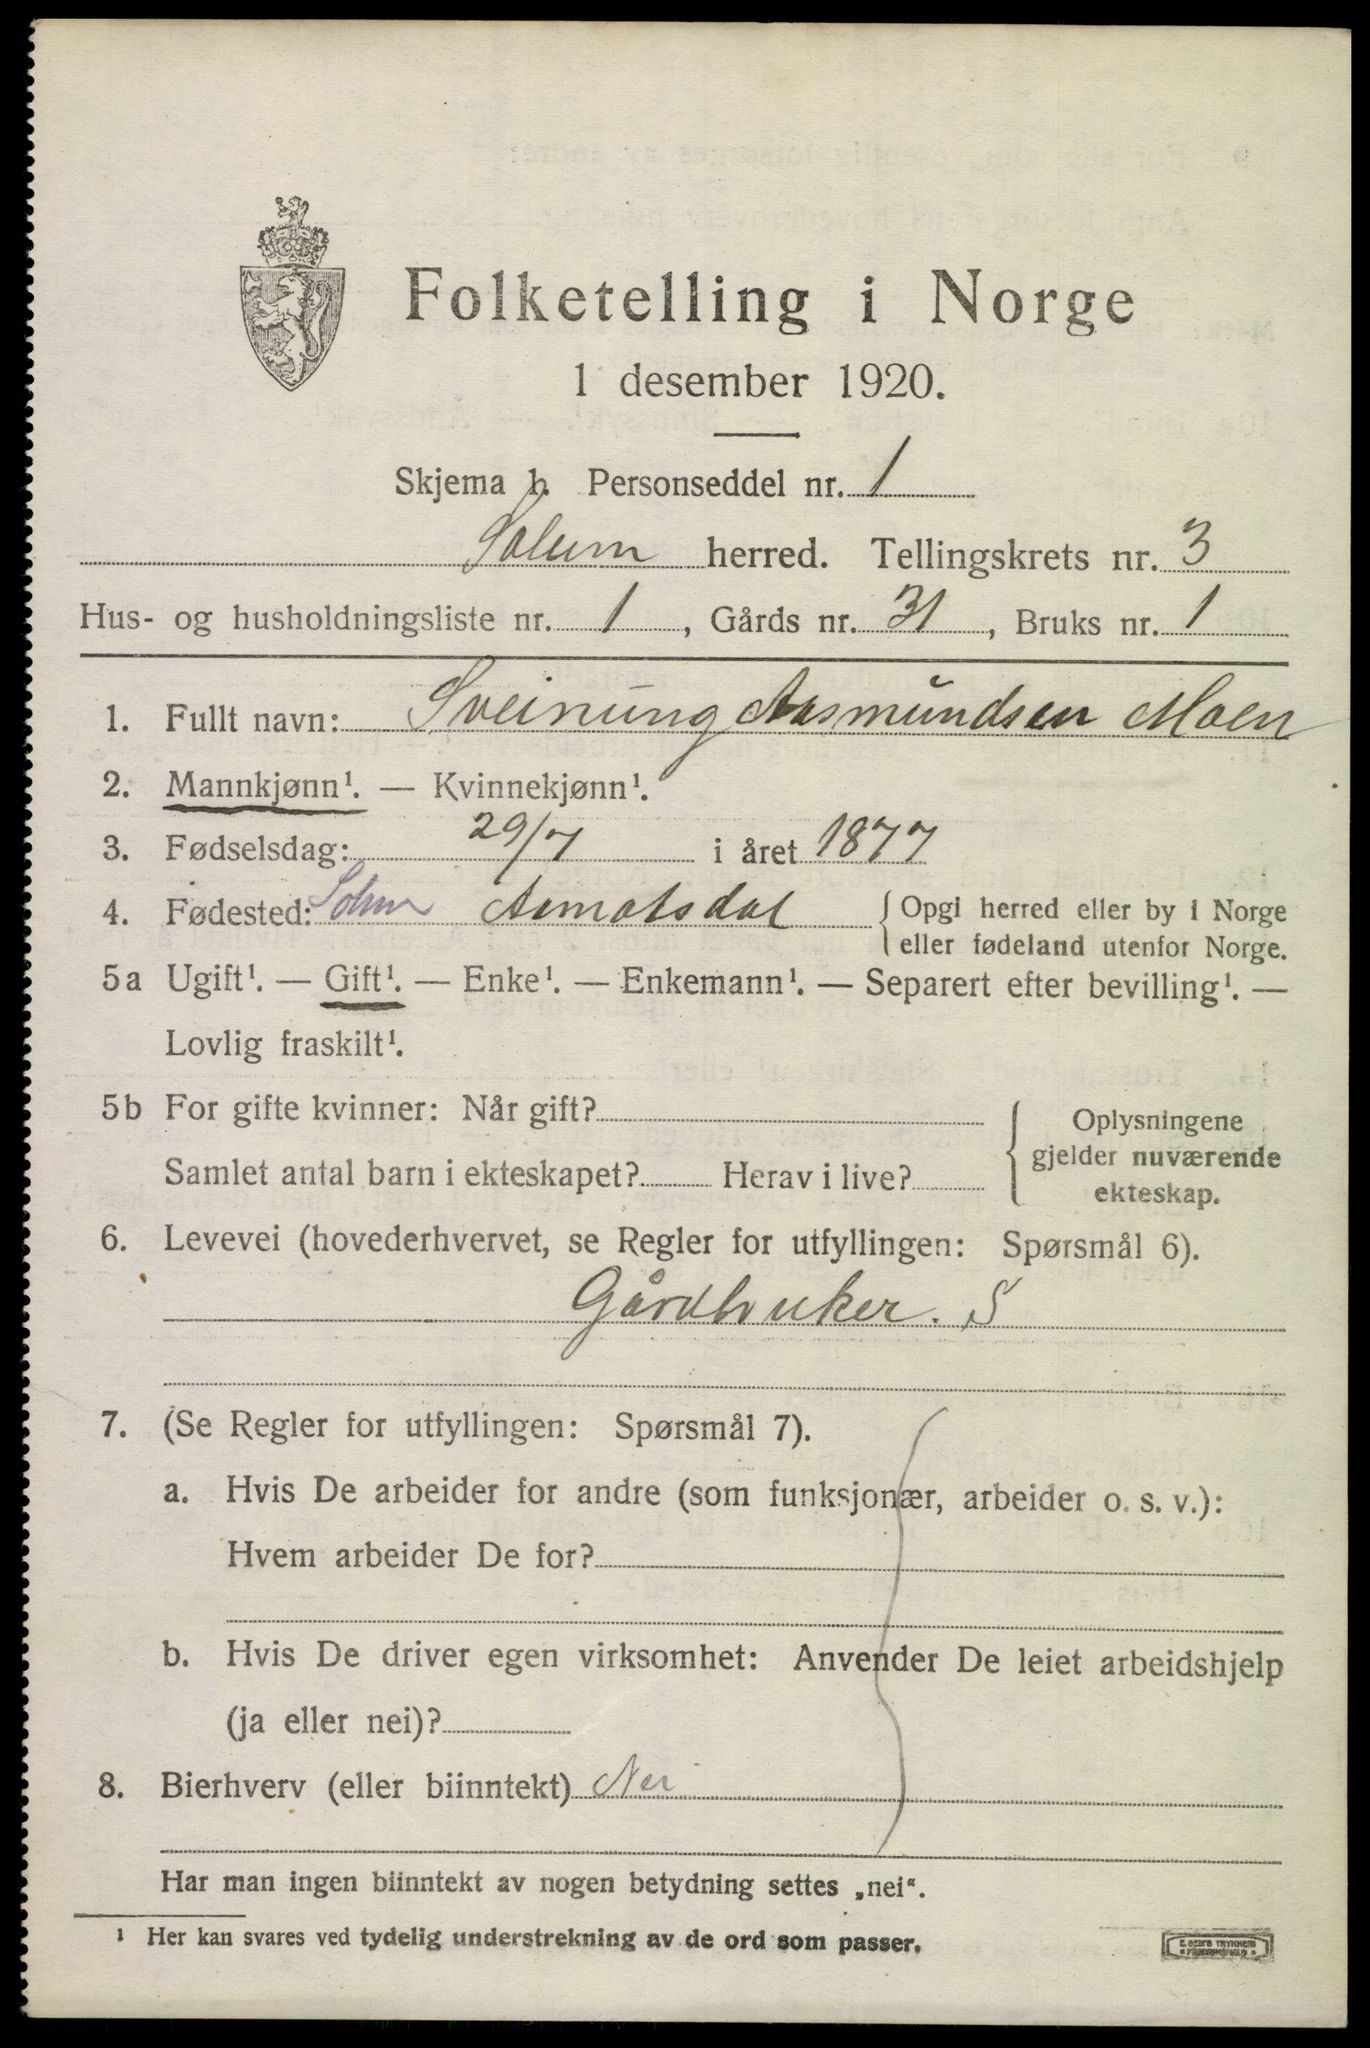 Folketelling i Norge
1 desember 1920.
Skjema b. Personseddel nr. 1
Solum herred. Tellingskrets nr. 3
Hus- og husholdningsliste nr. 1, Gårds nr. 31, Bruks nr. 1
1. Fullt navn: Sveinung Aasmundsen Moen
2. Mannkjønn¹. — Kvinnekjønn¹.
3. Fødselsdag: 29/7 i året 1877
4. Fødested: Solum Aamotsdal { Opgi herred eller by i Norge
eller fødeland utenfor Norge.
5a Ugift¹. — Gift¹. — Enke¹. — Enkemann¹. — Separert efter bevilling¹. —
Lovlig fraskilt¹.
5b For gifte kvinner: Når gift?
Samlet antal barn i ekteskapet? Herav i live?
{ Oplysningene
gjelder nuværende
ekteskap.
6. Levevei (hovederhvervet, se Regler for utfyllingen: Spørsmål 6).
Gårdbruker. S
7. (Se Regler for utfyllingen: Spørsmål 7).
a. Hvis De arbeider for andre (som funksjonær, arbeider o. s. v.):
Hvem arbeider De for?
b. Hvis De driver egen virksomhet: Anvender De leiet arbeidshjelp
(ja eller nei)?
8. Bierhverv (eller biinntekt) Nei
Har man ingen biinntekt av nogen betydning settes „nei“.
¹ Her kan svares ved tydelig understrekning av de ord som passer.